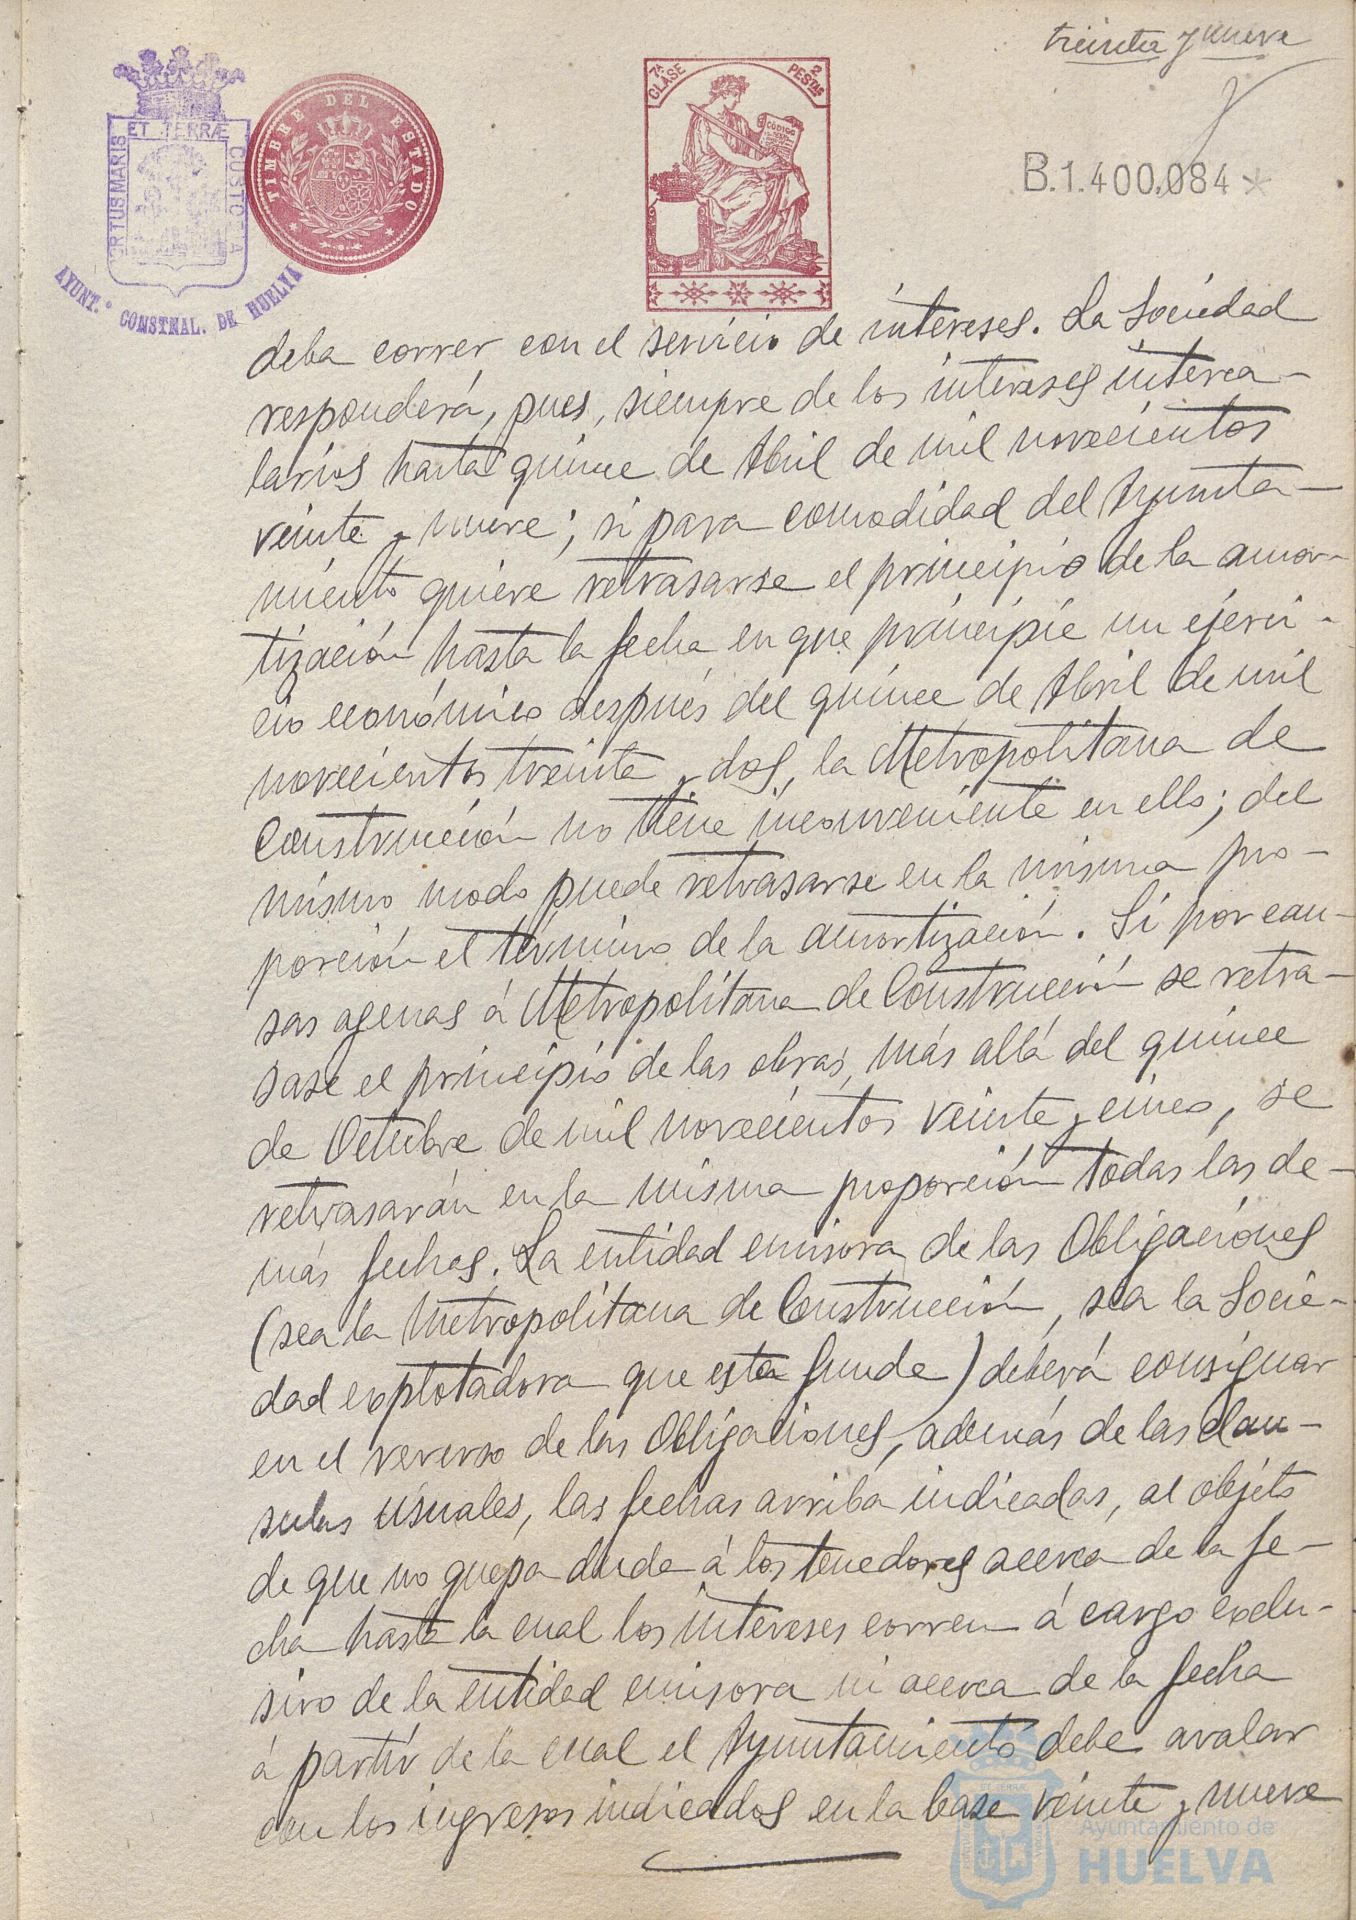 treinta y nueve
7ª CLASE
2 PESTAS
CÓDIGO
TIMBRE DEL ESTADO
PORTUS MARIS ET TERRÆ CUSTODIA
AYUNT.º CONSTNAL. DE HUELVA
B.1.400,084*
deba correr con el servicio de intereses. La Sociedad
responderá, pues, siempre de los intereses interca-
larios hasta quince de Abril de mil novecientos
veinte y nueve; si para comodidad del Ayunta-
miento quiere retrasarse el principio de la amor-
tización hasta la fecha en que principie un ejerci-
cio económico después del quince de Abril de mil
novecientos treinta y dos, la Metropolitana de
Construcción no tiene inconveniente en ello; del
mismo modo puede retrasarse en la misma pro-
porción el término de la amortización. Si por cau-
sas agenas á Metropolitana de Construcción se retra-
sase el principio de las obras, más allá del quince
de Octubre de mil novecientos veinte y cinco, se
retrasarán en la misma proporción todas las de-
más fechas. La entidad emisora de las Obligaciónes
(sea la Metropolitana de Construcción, sea la Socie-
dad explotadora que esta funde) deberá consignar
en el reverso de las Obligaciones, además de las clau-
sulas usuales, las fechas arriba indicadas, al objeto
de que no quepa duda á los tenedores acerca de la fe-
cha hasta la cual los intereses corren á cargo exclu-
sivo de la entidad emisora ni acerca de la fecha
á partir de la cual el Ayuntamiento debe avalar
con los ingresos indicados en la base veinte y nueve
Ayuntamiento de
HUELVA